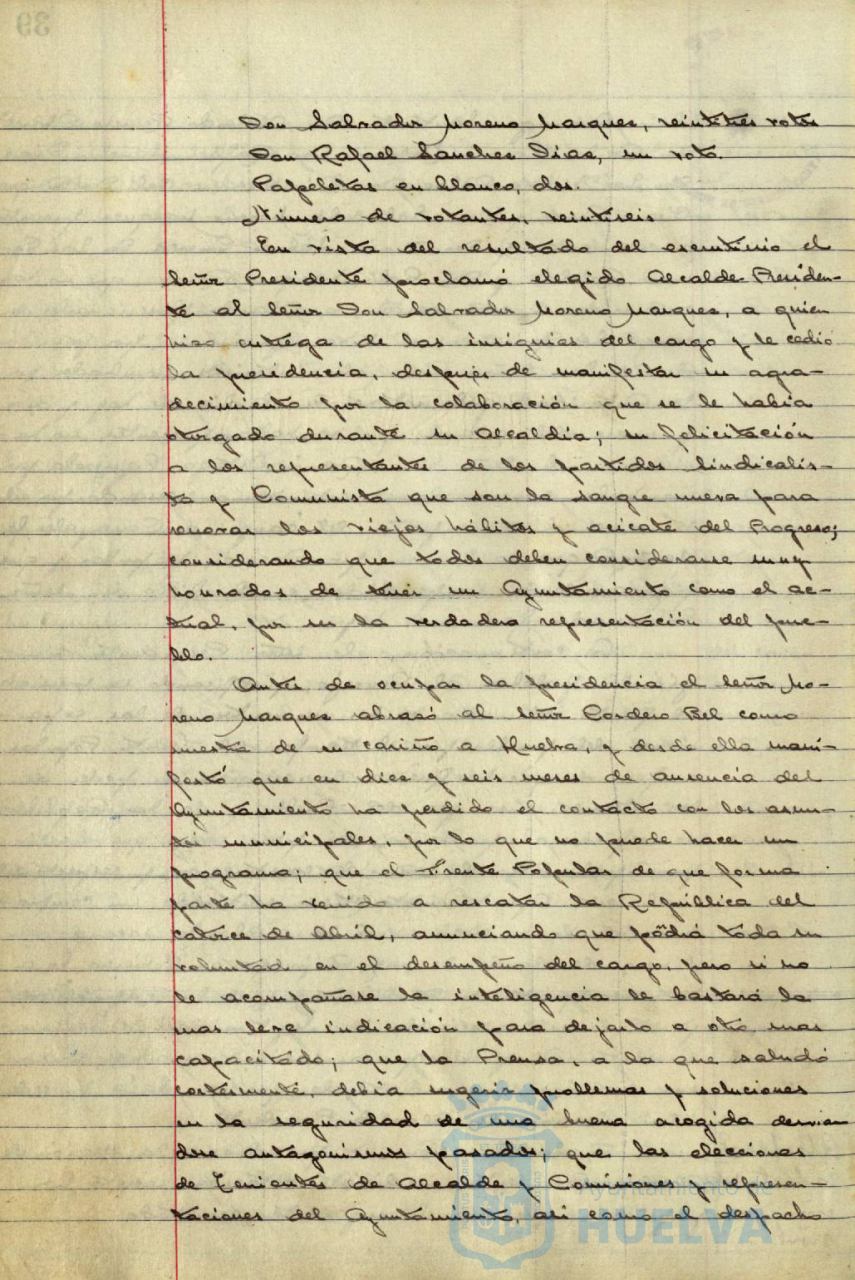 39
Don Salvador Moreno Marques, veintitres votos
Don Rafael Sanches Dias, un voto.
Papeletas en blanco, dos.
Número de votantes, veintiseis
En vista del resultado del escrutinio el
señor Presidente proclamó elegido Alcalde-Presiden-
te al señor Don Salvador Moreno Marques, a quien
hizo entrega de las insignias del cargo y le cedió
la presidencia, despues de manifestar su agra-
decimiento por la colaboración que se le había
otorgado durante su Alcaldía; su felicitación
a los representantes de los partidos Sindicalis-
ta y Comunista que son la sangre nueva para
renovar los viejos hábitos y acicate del Progreso;
considerando que todos deben considerarse muy
honrados de tener un Ayuntamiento como el ac-
tual, por ser la verdadera representación del pue-
blo.
Antes de ocupar la presidencia el señor Mo-
reno Marques abrasó al señor Cordero Bel como
muestra de su cariño a Huelva, y desde ella mani-
festó que en diez y seis meses de ausencia del
Ayuntamiento ha perdido el contacto con los asun-
tos municipales, por lo que no puede hacer un
programa; que el Frente Popular de que forma
parte ha venido a rescatar la República del
catorce de Abril, anunciando que pondrá toda su
voluntad en el desempeño del cargo, pero si no
le acompañase la inteligencia le bastará la
mas leve indicación para dejarlo a otro mas
capacitado; que la Prensa, a la que saludó
cortesmente, debía sugerir problemas y soluciones
en la seguridad de una buena acogida
antagonismos pasados; que las elecciones
de Tenientes de Alcalde y Comisiones y represen-
taciones del Ayuntamiento, asi como el despacho
Ayuntamiento de
HUELVA